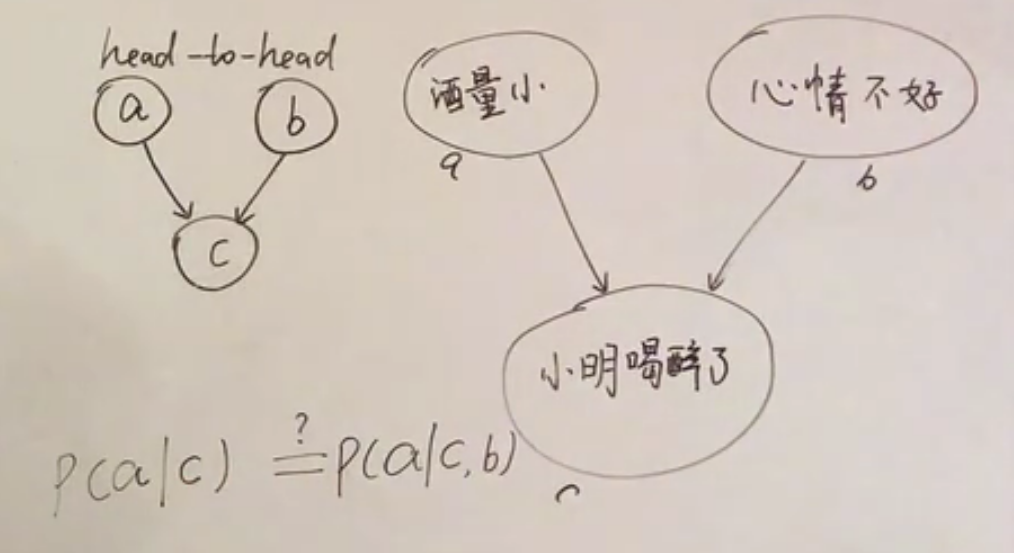 head-to-head
a
b
c
酒量小
a
心情不好
b
小明喝醉了
c
P(a|c) ?= P(a|c,b)